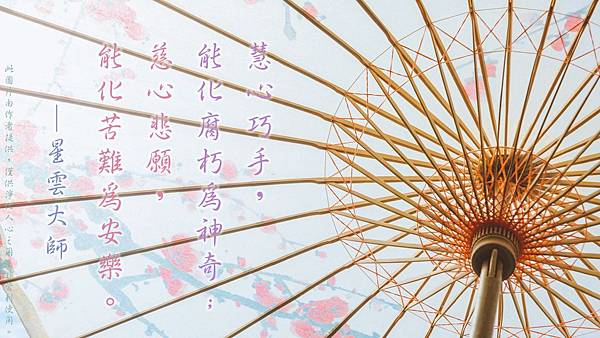 慧心巧手，
能化腐朽爲神奇；
慈心悲願，
能化苦難爲安樂。
—星雲大師
此圖片由作者提供，僅供淨人心之用
使用。